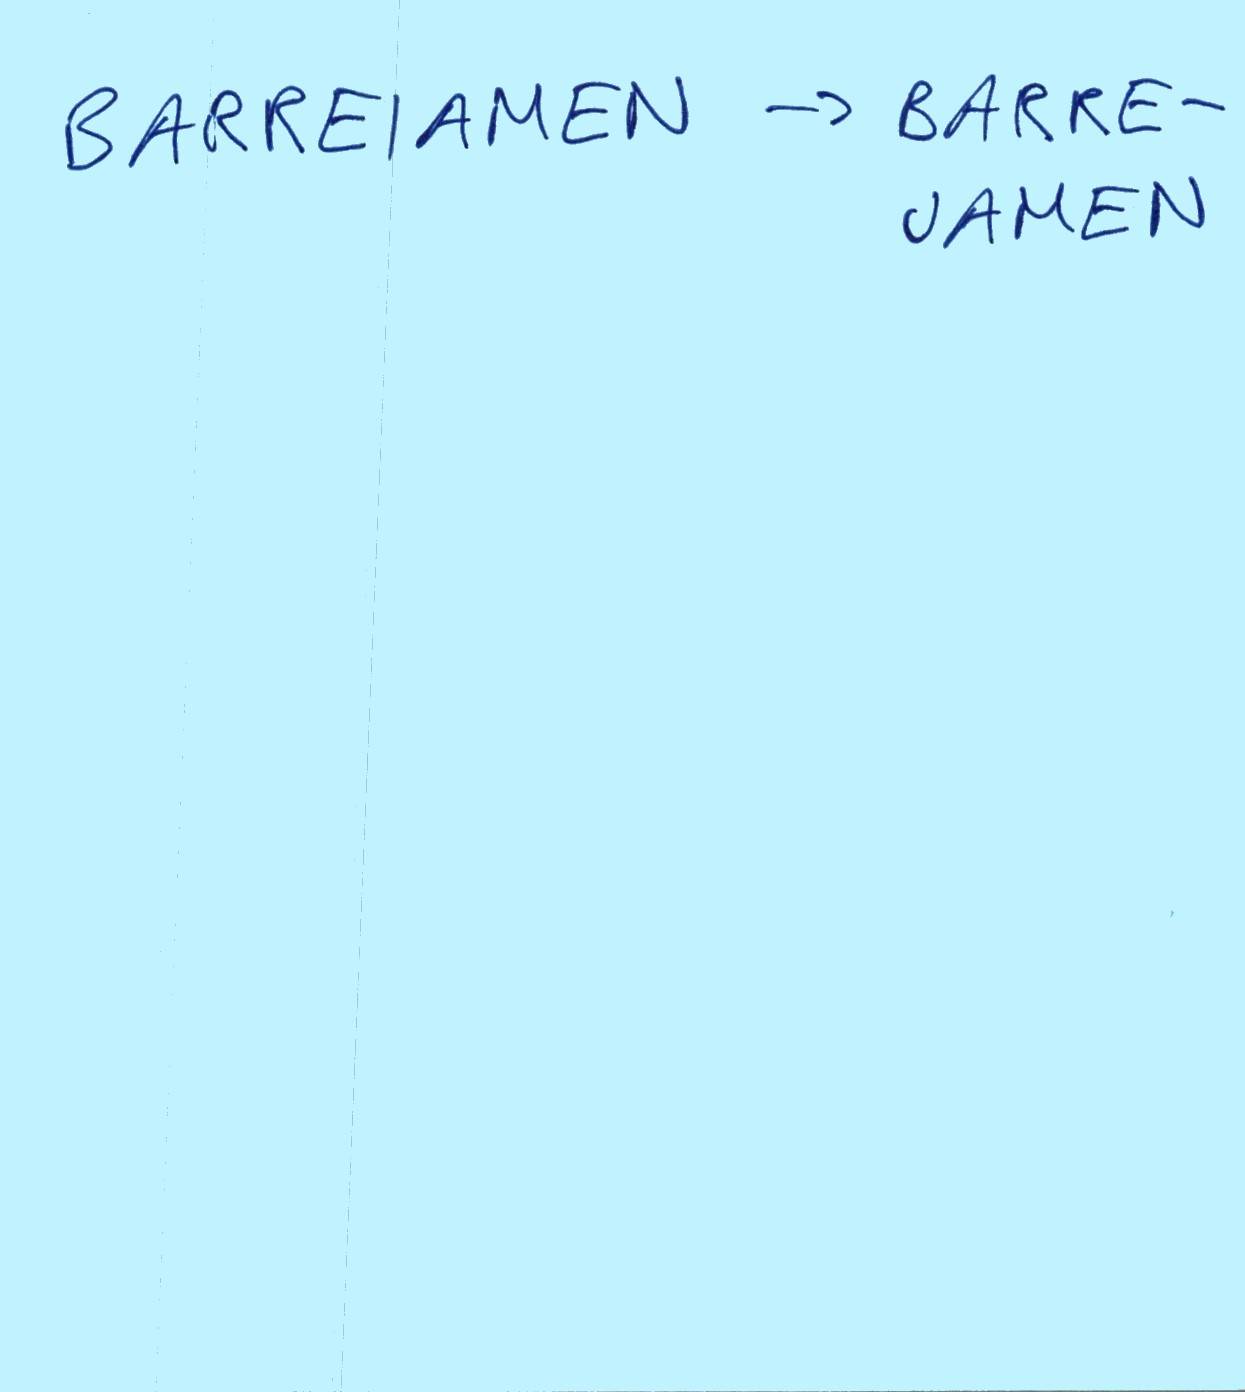 BARREIAMEN -> BARRE-
JAMEN